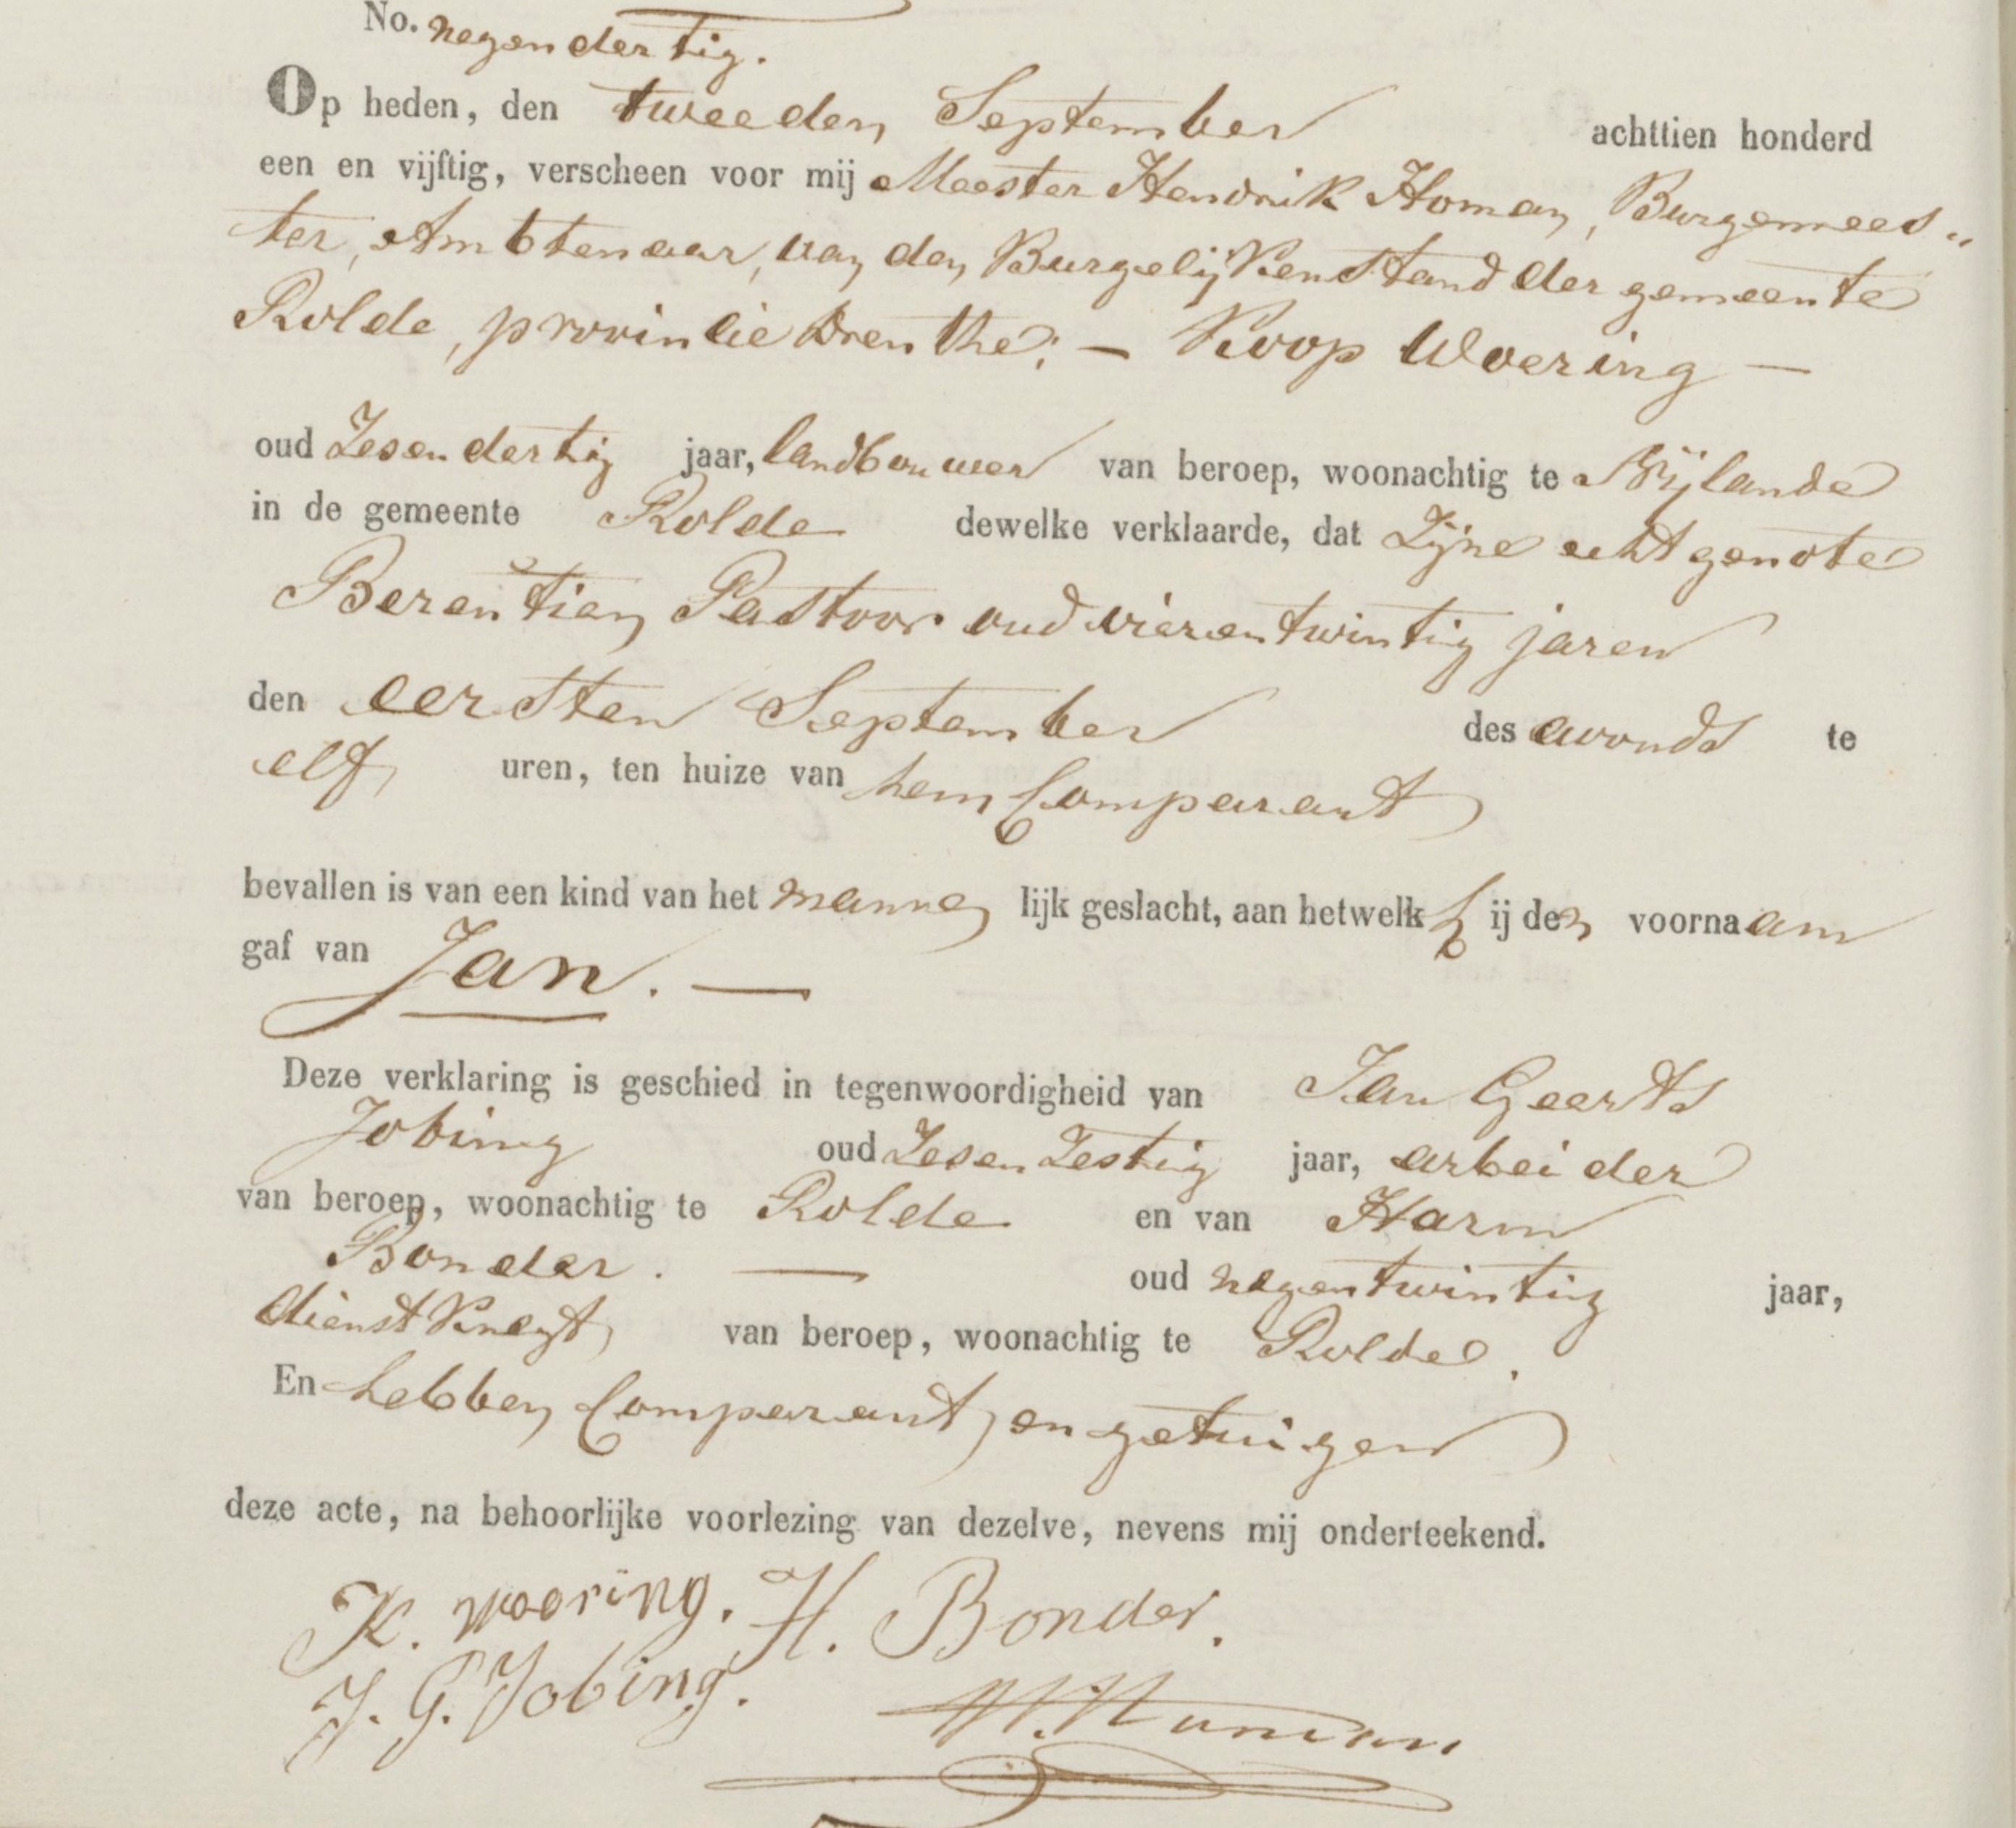 No. negendertig.
Op heden, den tweeden September achttien honderd
een en vijftig, verscheen voor mij Meester Hendrik Homan, Burgemees„
ter, Ambtenaar, van den Burgelijken Stand der gemeente
Rolde, provincie Drenthe; — Koop Woering —
oud Zesendertig jaar, landbouwer van beroep, woonachtig te Nijlande
in de gemeente Rolde dewelke verklaarde, dat Zijne echtgenote
Berentien Pastoor oud vierentwintig jaren
den eersten September des avonds te
elf uren, ten huize van hem Comparant
bevallen is van een kind van het manne lijk geslacht, aan hetwelk h ij den voornaam
gaf van Jan. —
Deze verklaring is geschied in tegenwoordigheid van Jan Geerts
Jobing oud Zesen Zestig jaar, arbeider
van beroep, woonachtig te Rolde en van Harm
Bonder. — oud negentwintig jaar,
dienstknegt van beroep, woonachtig te Rolde.
En hebben Comparant en getuigen
deze acte, na behoorlijke voorlezing van dezelve, nevens mij onderteekend.
K. woering. H. Bonder.
J. G. Jobing.
H. Homan